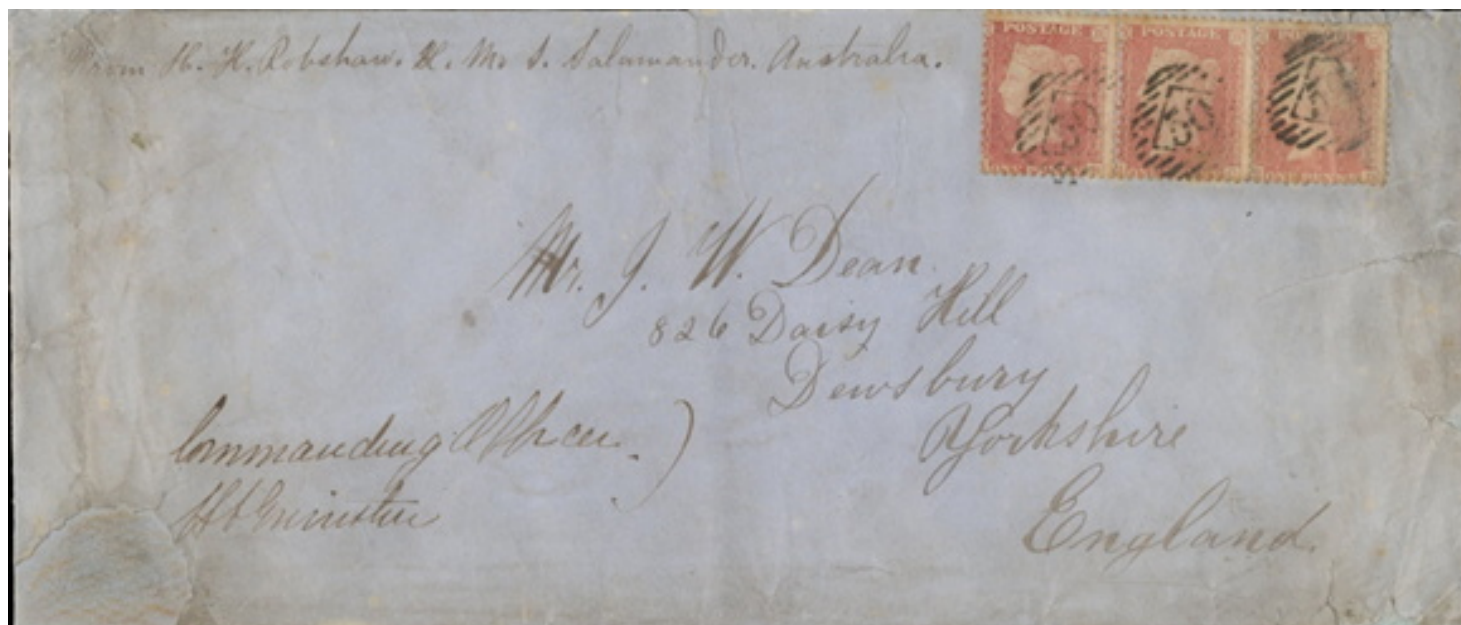 From H. H. Robshaw. H. M. S. Salamander. Australia.
POSTAGE POSTAGE
ONE PENNY
Mr. J. W. Dean.
826 Daisy Hill
Dewsbury
Yorkshire
England.
Commanding Officer. )